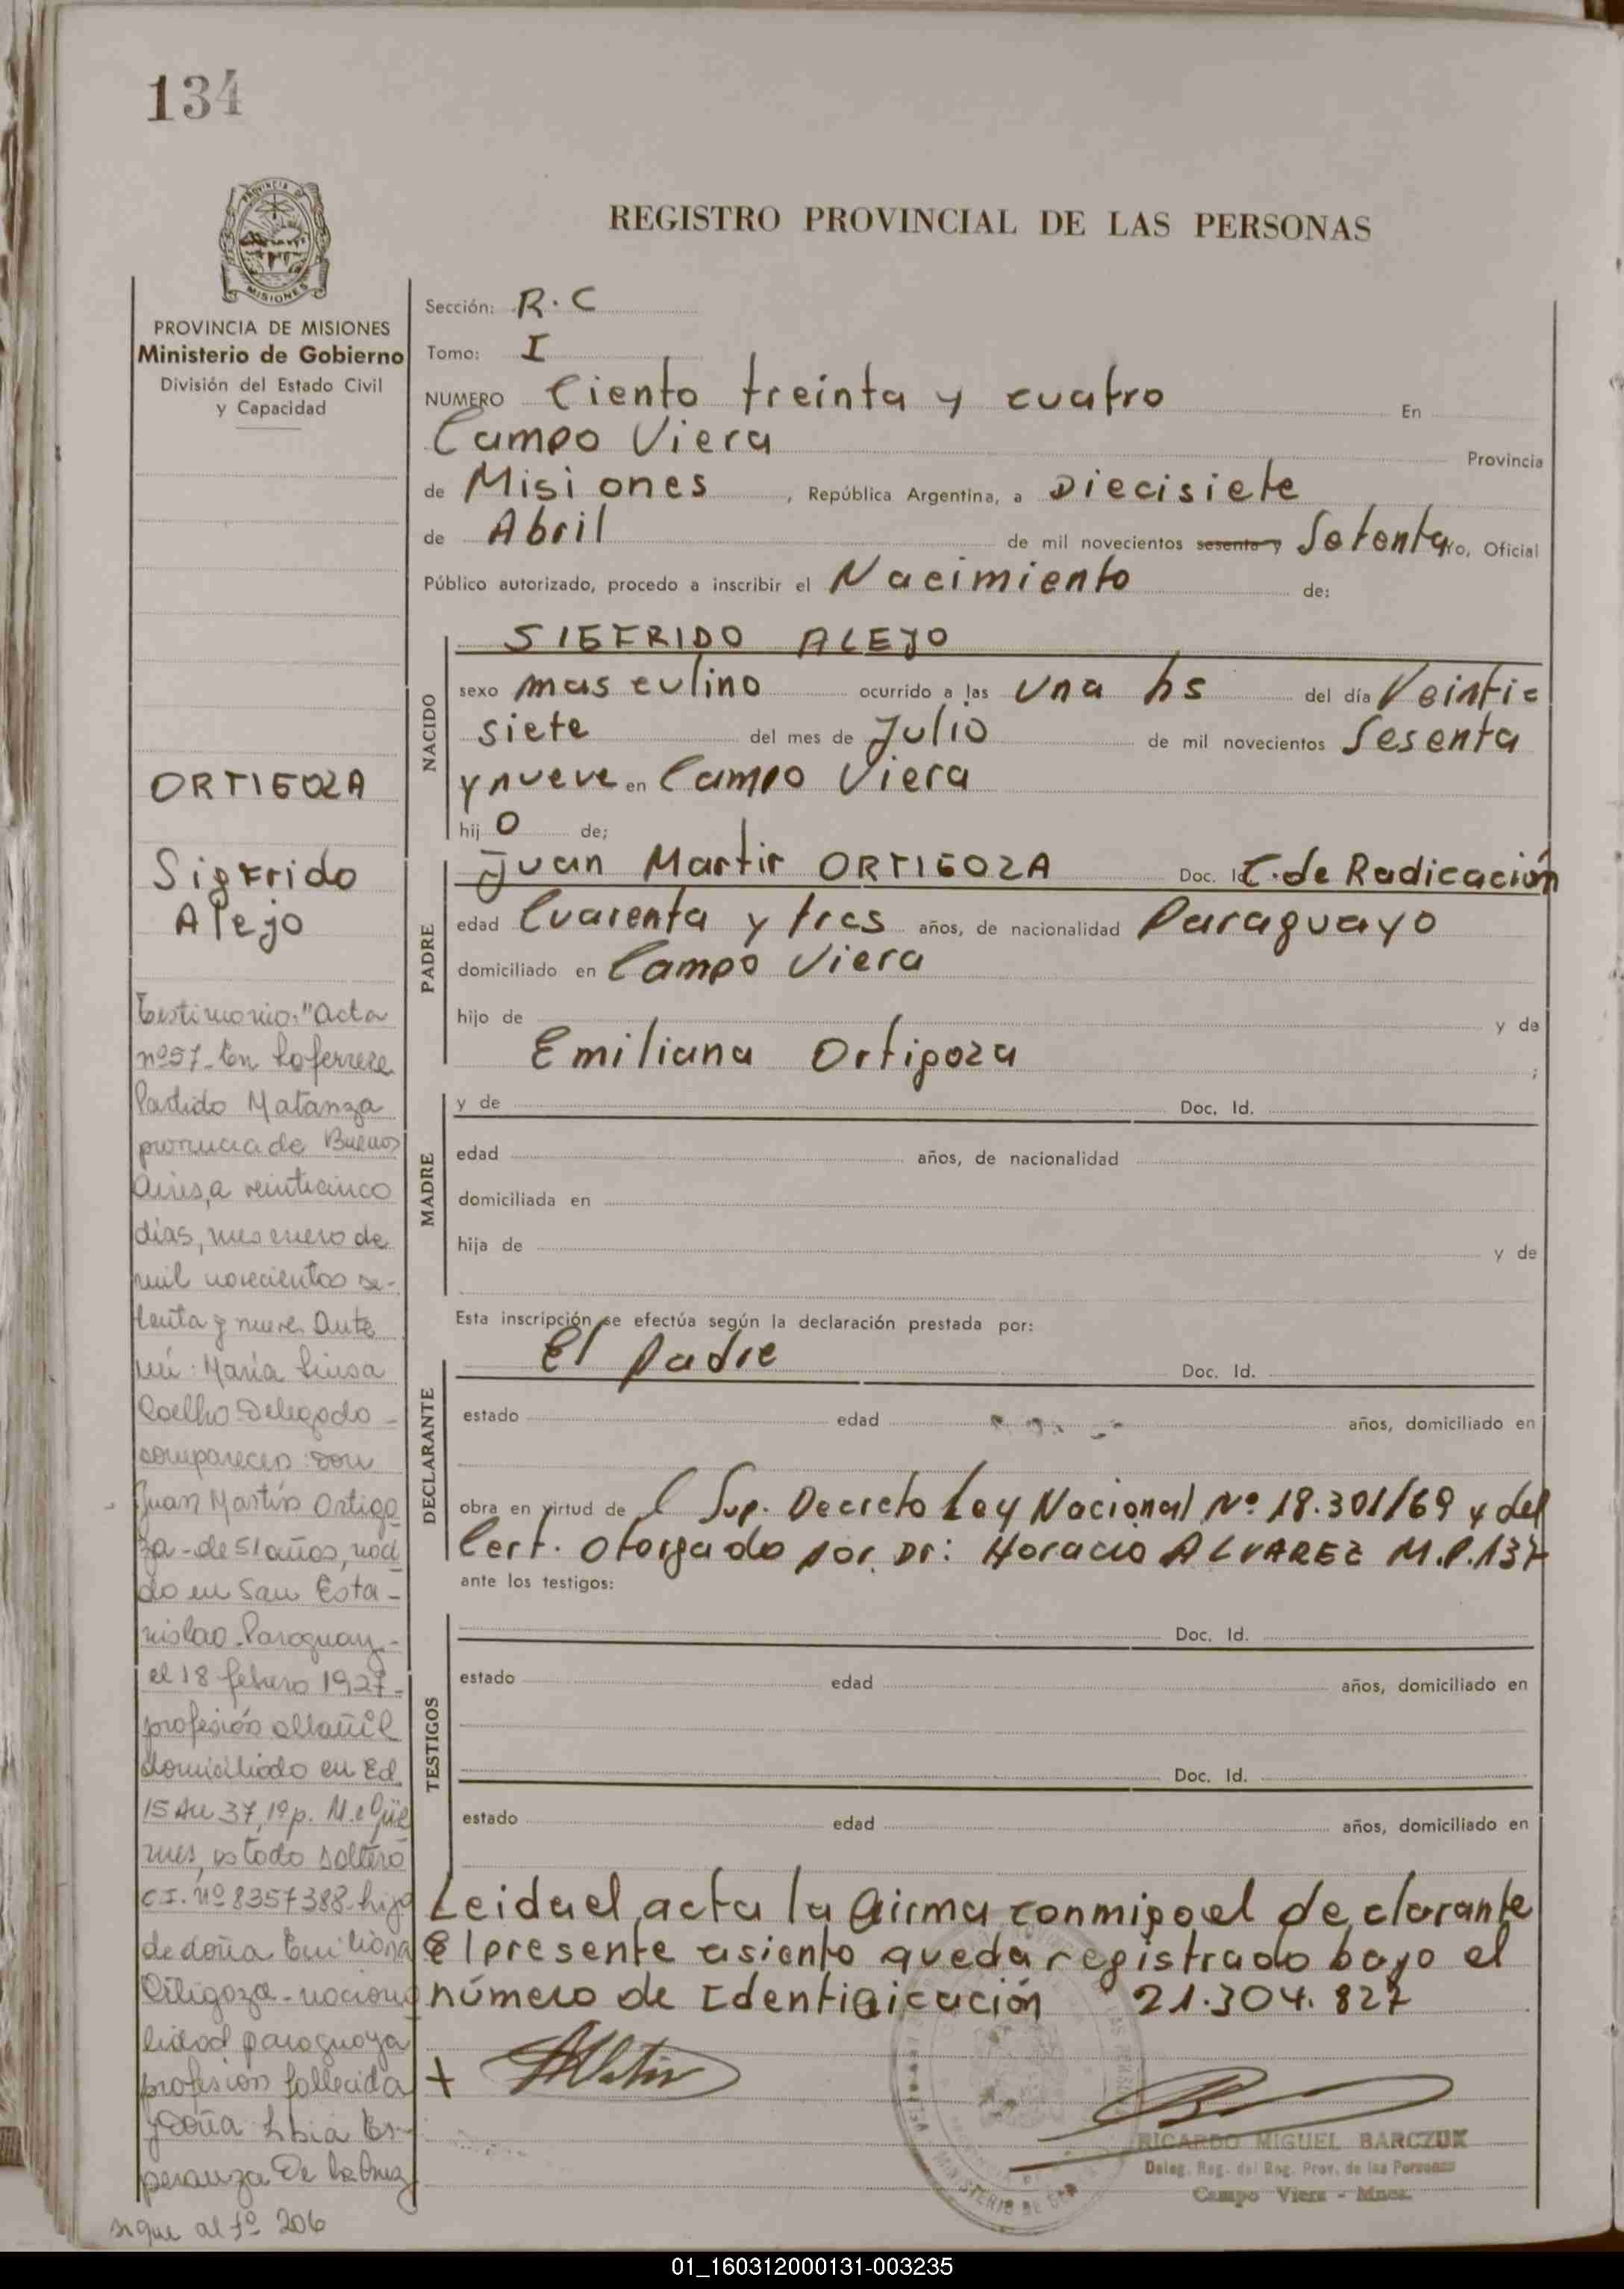 134
PROVINCIA DE
MISIONES
PROVINCIA DE MISIONES
Ministerio de Gobierno
División del Estado Civil
y Capacidad
ORTIGOZA
Sigfrido
Alejo
Testimonio: "Acta
nº 57. En Laferrere
Partido Matanza
provincia de Buenos
Aires, a veinticinco
días, mes enero de
mil novecientos se-
tenta y nueve. Ante
mí: María Luisa
Coelho Delegado
comparecen: don
Juan Martín Ortigo
za - de 51 años, naci
do en San Esta-
nislao - Paraguay -
el 18 febrero 1927 -
profesión albañil
domiciliado en Ed.
15 Au 37, 1º p. M. e Güe
mes, estado soltero
CI. Nº 8357388 - hijo
de doña Emiliana
Ortigoza - naciona
lidad paraguaya
profesión fallecida
y Doña Libia Es-
peranza De la Cruz
sigue al fº 206
REGISTRO PROVINCIAL DE LAS PERSONAS
Sección: R.C
Tomo: I
NUMERO Ciento treinta y cuatro En
Campo Viera Provincia
de Misiones, República Argentina, a Diecisiete
de Abril de mil novecientos sesenta y Setenta ro, Oficial
Público autorizado, procedo a inscribir el Nacimiento de:
NACIDO
SIGFRIDO ALEJO
sexo masculino ocurrido a las Una hs del día Veinti=
siete del mes de Julio de mil novecientos Sesenta
y nueve en Campo Viera
hijo de;
PADRE
Juan Martir ORTIGOZA Doc. Id. C. de Radicación
edad Cuarenta y tres años, de nacionalidad Paraguayo
domiciliado en Campo Viera
hijo de y de
Emiliana Ortigoza ;
MADRE
y de Doc. Id.
edad años, de nacionalidad
domiciliada en
hija de y de
Esta inscripción se efectúa según la declaración prestada por:
DECLARANTE
El padre Doc. Id.
estado edad años, domiciliado en
obra en virtud de l Sup. Decreto Ley Nacional Nº 18.301/69 y del
Cert. otorgado por Dr: Horacio ALVAREZ M.P.137
ante los testigos:
TESTIGOS
Doc. Id.
estado edad años, domiciliado en
Doc. Id.
estado edad años, domiciliado en
Leida el acta la firma conmigo el declarante
El presente asiento queda registrado bajo el
número de Identificación 21.304.827
+
RICARDO MIGUEL BARCZUK
Deleg. Reg. del Reg. Prov. de las Personas
Campo Viera - Mnes.
01_160312000131-003235